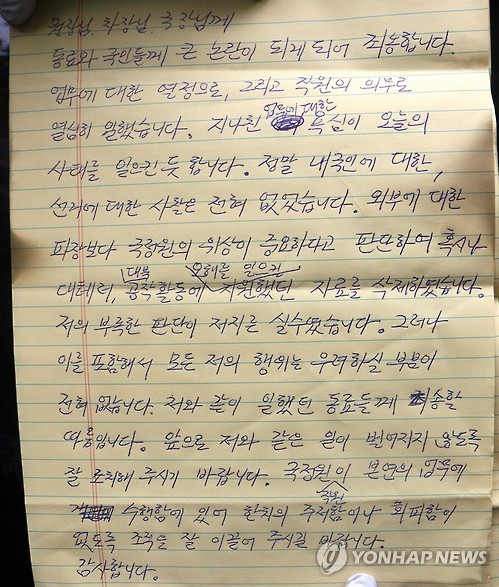 원장님, 차장님, 국장님께
동료와 국민들께 큰 논란이 되게 되어 죄송합니다.
업무에 대한 열정으로, 그리고 직원의 의무로
열심히 일했습니다. 지나친 업무에 대한 욕심이 오늘의
사태를 일으킨 듯 합니다. 정말 내국인에 대한,
선거에 대한 사찰은 전혀 없었습니다. 외부에 대한
파장보다 국정원의 위상이 중요하다고 판단하여 혹시나
대테러, 대북 공작활동에 오해를 일으킨 지원했던 자료를 삭제하였습니다.
저의 부족한 판단이 저지른 실수였습니다. 그러나
이를 포함해서 모든 저의 행위는 우려하실 부분이
전혀 없습니다. 저와 같이 일했던 동료들께 죄송할
따름입니다. 앞으로 저와 같은 일이 벌어지지 않도록
잘 조치해 주시기 바랍니다. 국정원이 본연의 업무에
직원 수행함에 있어 한치의 주저함이나 회피함이
없도록 조직을 잘 이끌어 주시길 바랍니다.
감사합니다.
YONHAP NEWS